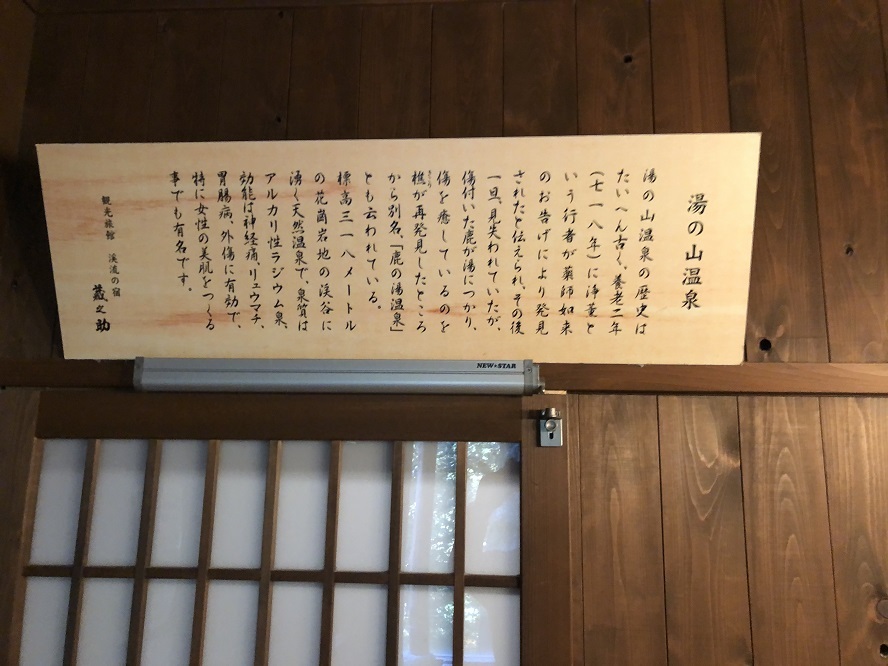 湯の山温泉
湯の山温泉の歴史は
たいへん古く、養老二年
(七一八年)に浄薫と
いう行者が薬師如来
のお告げにより発見
されたと伝えられ、その後
一旦、見失われていたが、
傷付いた鹿が湯につかり、
傷を癒しているのを
樵が再発見したところ
から別名、「鹿の湯温泉」
とも云われている。
標高三一八メートル
の花崗岩地の渓谷に
湧く天然温泉で、泉質は
アルカリ性ラジウム泉、
効能は神経痛、リュウマチ、
胃腸病、外傷に有効で、
特に女性の美肌をつくる
事でも有名です。
観光旅館 渓流の宿
蔵之助
NEW★STAR